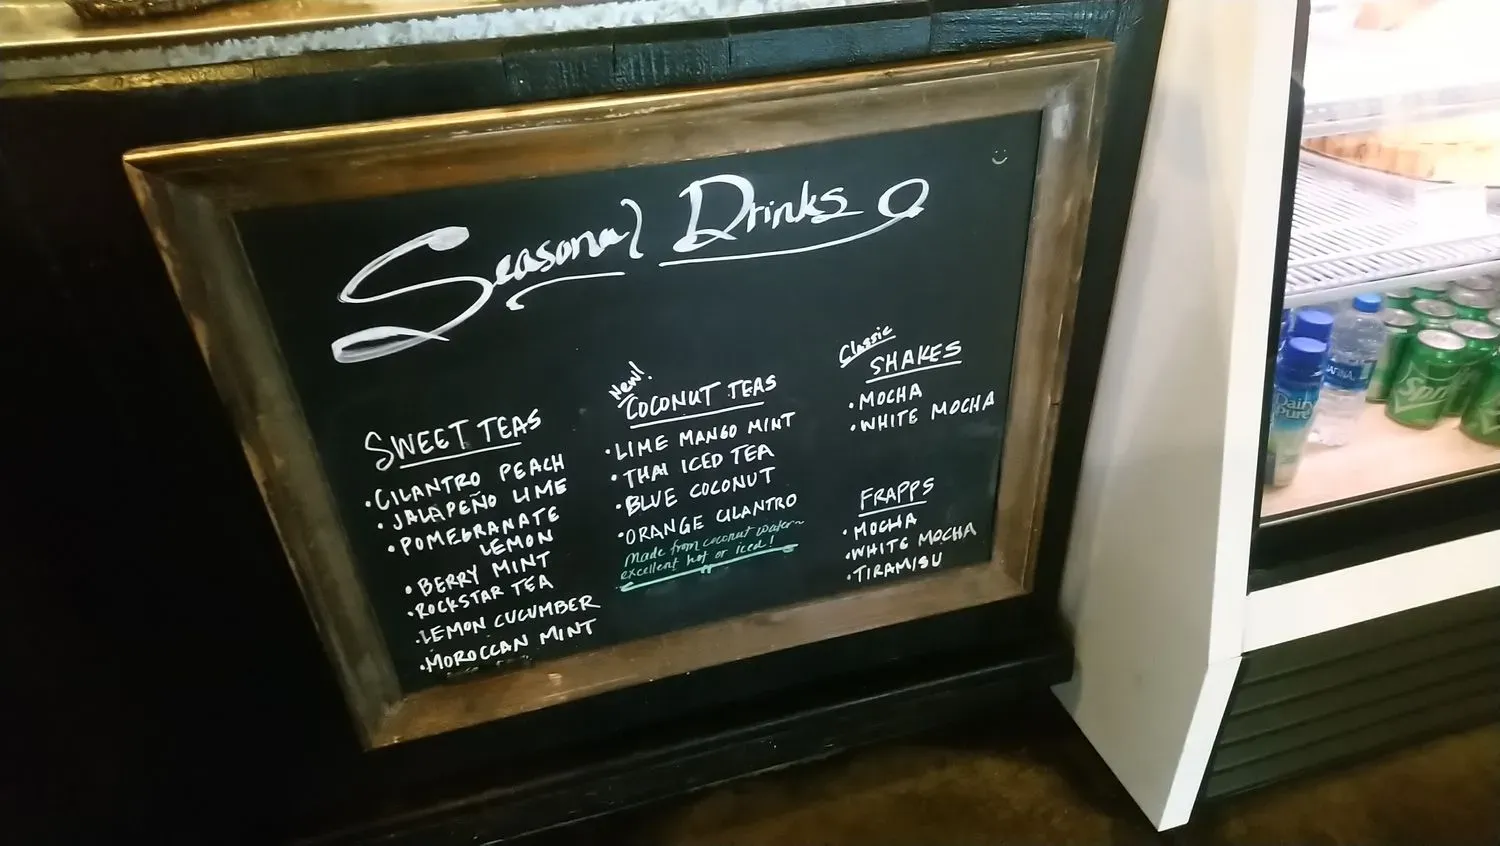 Seasonal Drinks
SWEET TEAS
• CILANTRO PEACH
• JALAPEÑO LIME
• POMEGRANATE
LEMON
• BERRY MINT
• ROCKSTAR TEA
• LEMON CUCUMBER
• MOROCCAN MINT
New!
COCONUT TEAS
• LIME MANGO MINT
• THAI ICED TEA
• BLUE COCONUT
• ORANGE CILANTRO
Made from coconut water~
excellent hot or iced!
Classic
SHAKES
• MOCHA
• WHITE MOCHA
FRAPPS
• MOCHA
• WHITE MOCHA
• TIRAMISU
Dairy
Pure
Sprite